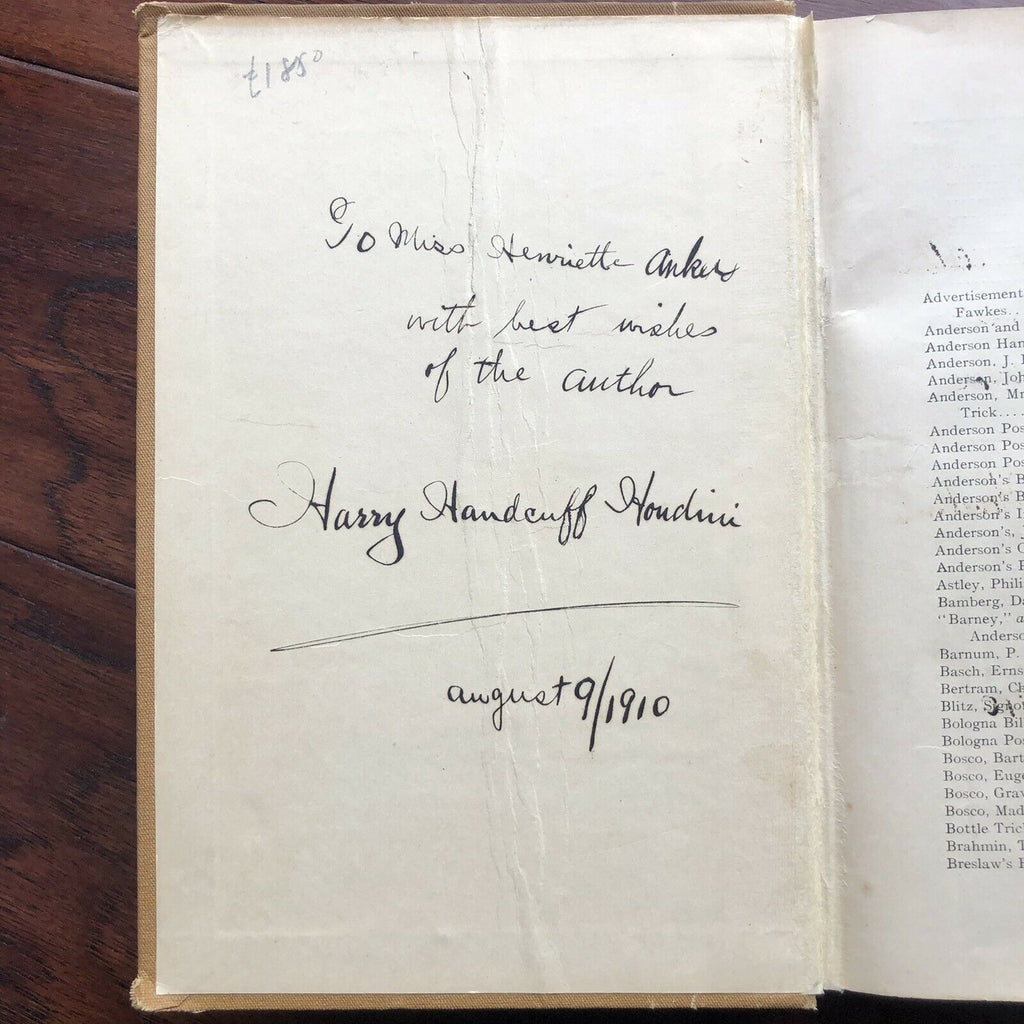 £1850
To Miss Henriette Ankers
with best wishes
of the author
Harry Handcuff Houdini
august 9/1910
Advertisement
Fawkes..
Anderson and
Anderson Han
Anderson, J. H
Anderson, Joh
Anderson, Mr
Trick....
Anderson Pos
Anderson Pos
Anderson Pos
Anderson's B
Anderson's B
Anderson's I
Anderson's, J
Anderson's C
Anderson's P
Astley, Phili
Bamberg, Da
"Barney," a
Anderso
Barnum, P.
Basch, Erns
Bertram, Ch
Blitz, Signor
Bologna Bil
Bologna Pos
Bosco, Bart
Bosco, Euge
Bosco, Grav
Bosco, Mad
Bottle Tric
Brahmin, T
Breslaw's